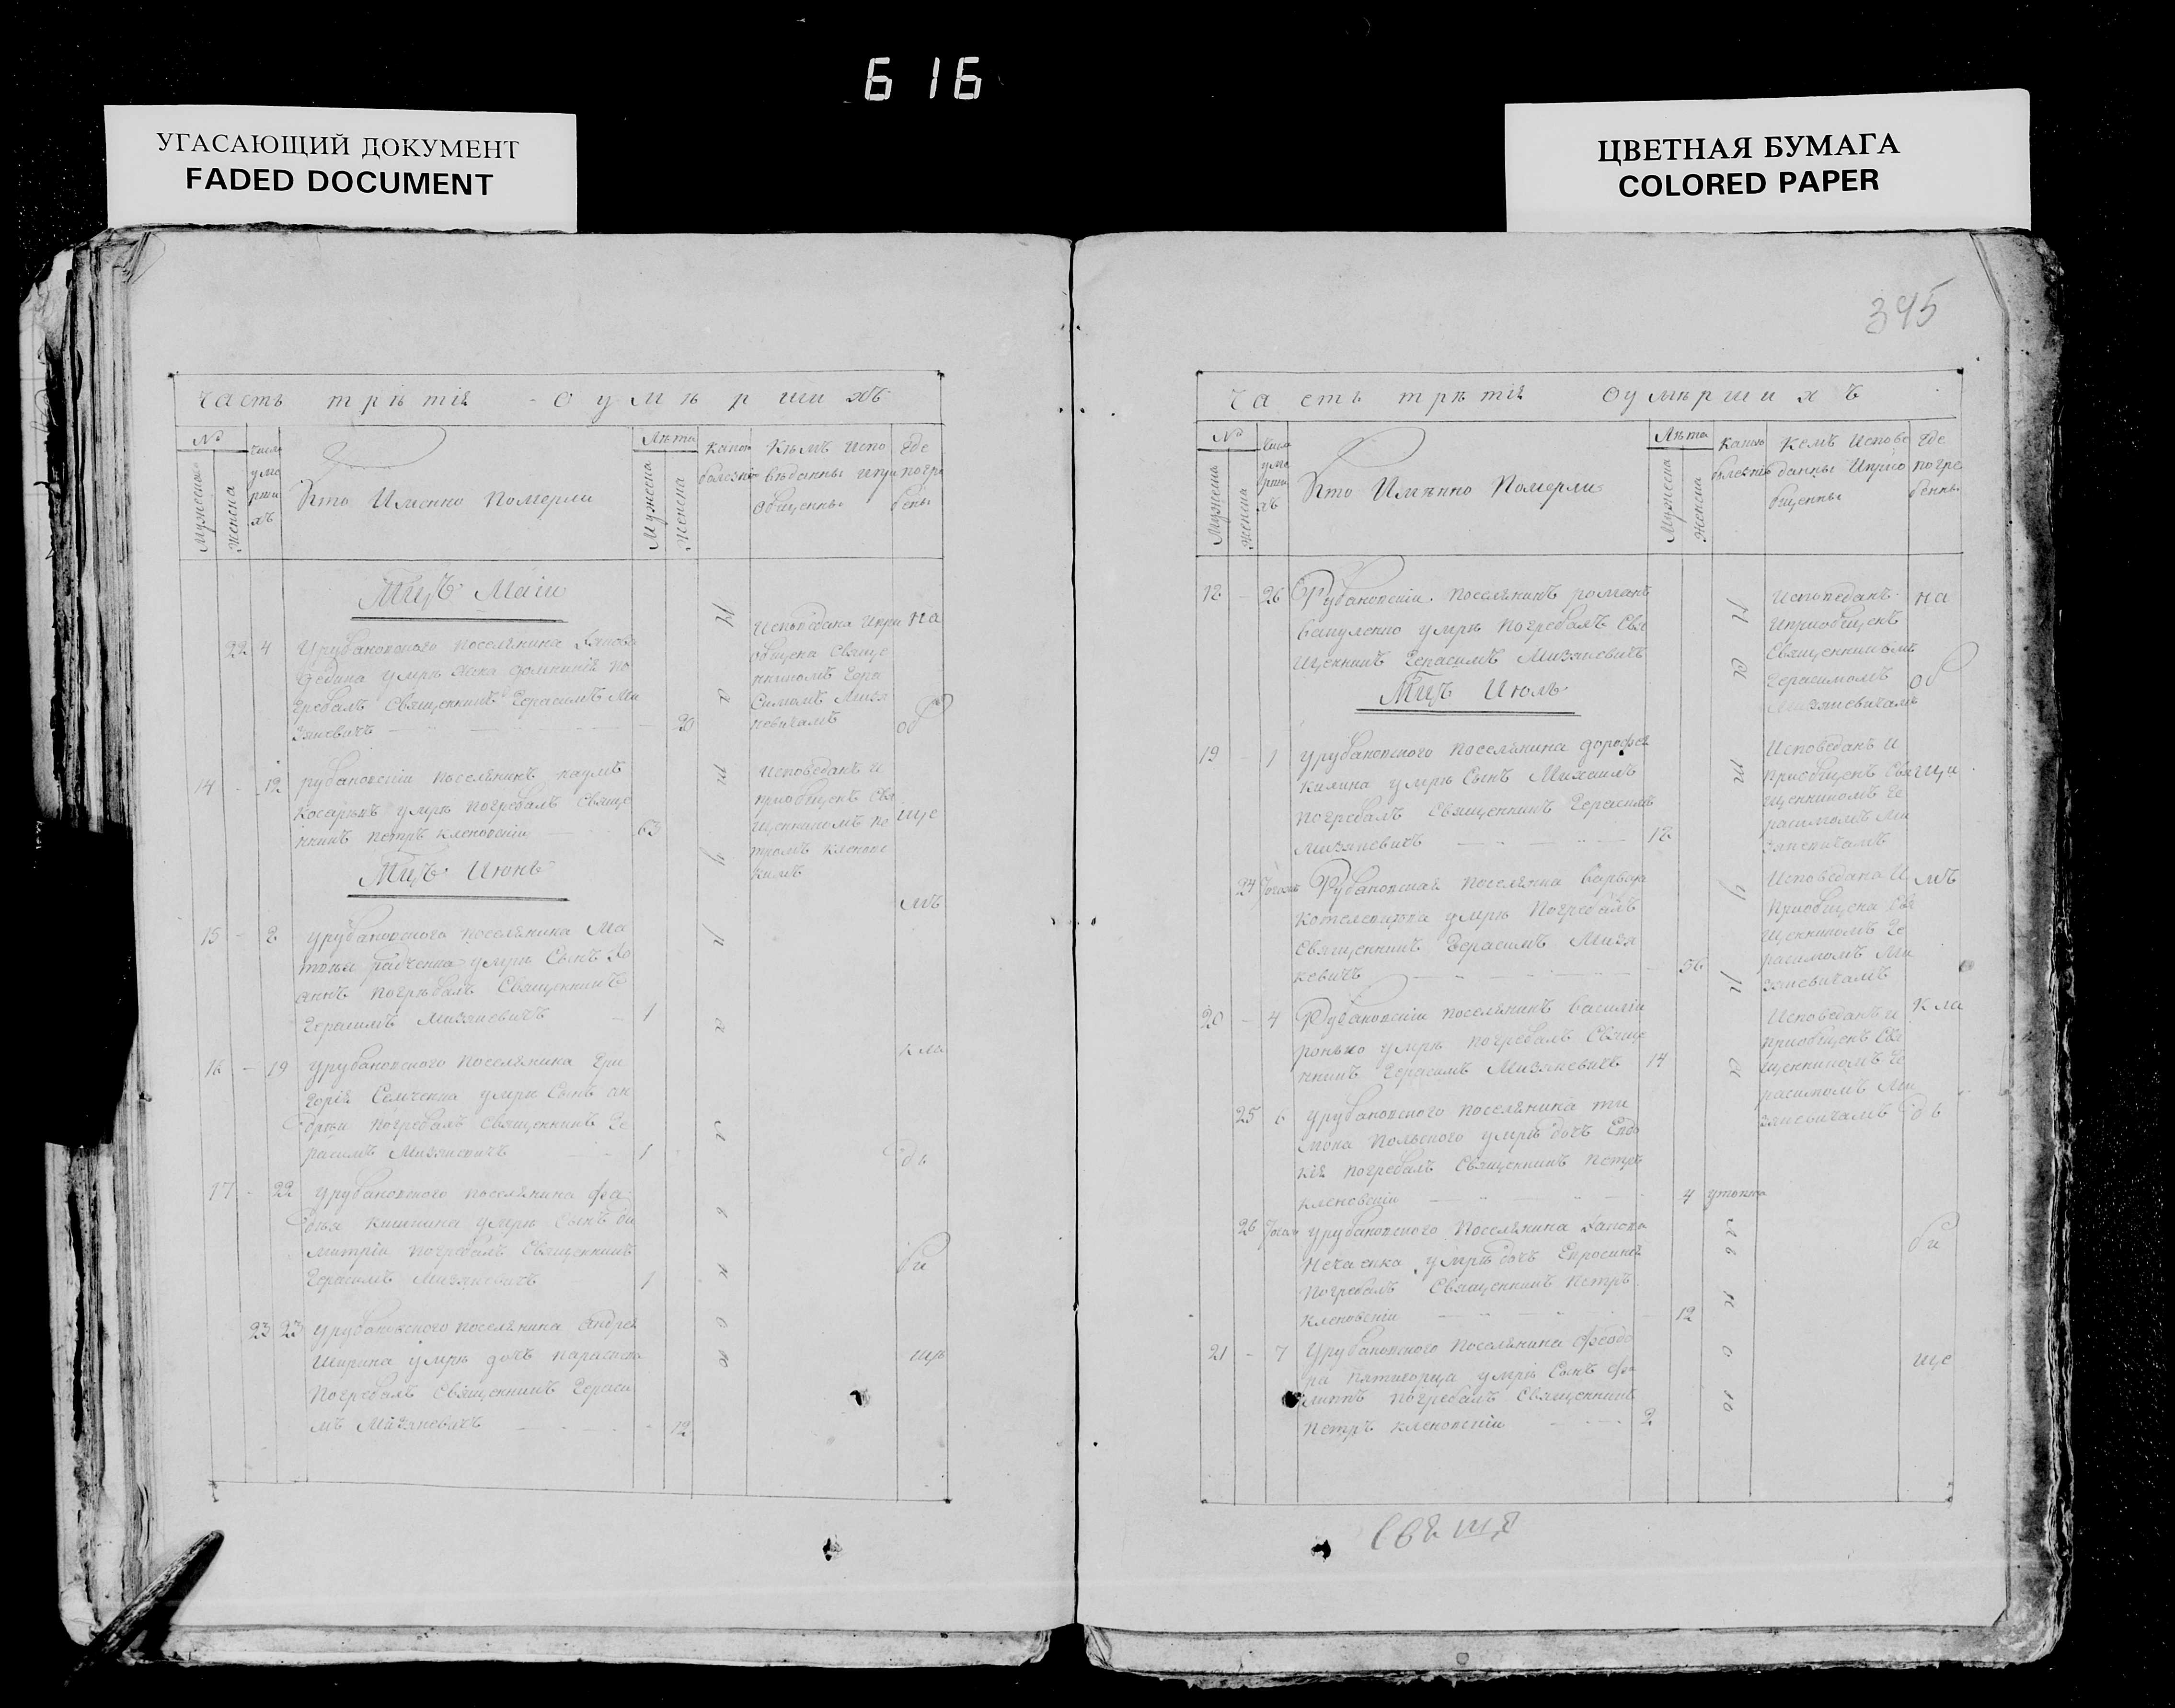 616
УГАСАЮЩИЙ ДОКУМЕНТ
FADED DOCUMENT
ЦВЕТНАЯ БУМАГА
COLORED PAPER
часть трѣтія о умѣршихъ
№
Мужеска
Женска
числа умертихъ
Кто Именно Померли
Лѣта
Мужеска
Женска
Какою болезнію
Кѣмъ Исповѣданны и приобщенны
Где погребены
Мцъ Маіи
22 4 У рубановского поселянина
умрѣ жена домникія по
гребалъ Священникъ Герасимъ Ми
зяневичъ 20
Исповедана и при
общена Свяще
нникомъ Гера
симомъ Мизя
невичамъ
14 12 рубановскіи поселянинъ наумъ
Косарынъ умрѣ погребалъ Свяще
нникъ петръ кленовскіи 63
Исповеданъ и
приобщенъ Свя
щенникомъ пе
тромъ кленовс
кимъ
Мцъ Июнь
15 2 У рубановского поселянина Ма
умрѣ Сынъ Іо
аннъ погрѣбалъ Священникъ
Герасимъ Мизяневичъ 1
16 19 У рубановского поселянина Гри
горія Семченка умрѣ Сынъ ан
дрѣи погребалъ Священникъ Ге
расимъ Мизяневичъ 1
17 22 У рубановского поселянина фа
дѣя кишкина умрѣ Сынъ ди
митріи погребалъ Священникъ
Герасимъ Мизяневичъ 1
23 23 У рубановского поселянина андрея
Ширина умрѣ дочъ параскева
Погребалъ Священникъ Гераси
мъ Мизяневичъ 12
натуральною
на об ще мъ кла дъ би щѣ
345
Часть трѣтія оумѣршихъ
№
Мужеска
Женска
Числа умертихъ
Кто Имѣнно Померли
Лѣта
Мужеска
Женска
Какою болезнію
Кемъ Исповеданны И приобщенны
Где погребенны
18 26 Рубановскіи поселянинъ романъ
умрѣ погребалъ Свя
щенникъ Герасимъ Мизяневичъ
Исповеданъ
и приобщенъ
Священникомъ
Герасимомъ
Мизяневичамъ
Мцъ Июль
19 1 У рубановского поселянина дорофея
килина умрѣ Сынъ Михаилъ
погребалъ Священникъ Герасимъ
Мизяневичъ 12
Исповеданъ и
приобщенъ Свя
щенникомъ Ге
расимомъ Ми
зяневичамъ
24 Тогожъ Рубановская поселянка варвара
умрѣ погребалъ
Священникъ Герасимъ Мизя
невичъ 56
Исповедана И
приобщена Свя
щенникомъ Ге
расимомъ Ми
зяневичамъ
20 4 Рубановскіи поселянинъ василіи
ронько умрѣ погребалъ Свяще
нникъ Герасимъ Мизяневичъ 14
Исповеданъ и
приобщенъ Свя
щенникомъ Ге
расимомъ Ми
зяневичамъ
25 6 У рубановского поселянина ти
мона польского умрѣ дочъ Евдо
кія погребалъ Священникъ петръ
кленовскіи 4 утопла
26 Тогож У рубановского поселянина
Нечаенка умрѣ дочъ Ефросинія
погребалъ Священникъ петръ
кленовскіи 12
21 7 У рубановского поселянина феодо
ра пятигорца умрѣ Сынъ фи
липпъ погребалъ Священникъ
петръ кленовскіи 2
натуральною
на об щи мъ кла дъ би ще